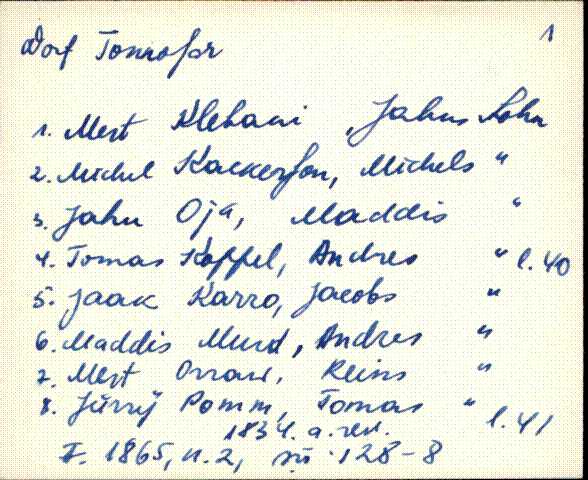 Dorf Tonnofer 1
1. Mert Klebani, Jahns Sohn
2. Michel Kackerson, Michels "
3. Jahn Oja, Maddis "
4. Tomas Koppel, Andres " l. 40
5. Jaak Karro, Jacobs "
6. Maddis Murd, Andres "
7. Mert Orraw, Reins "
8. Jürry Pomm, Tomas " l. 41
1834. a. rev.
F. 1865, n. 2, sü. 128-8